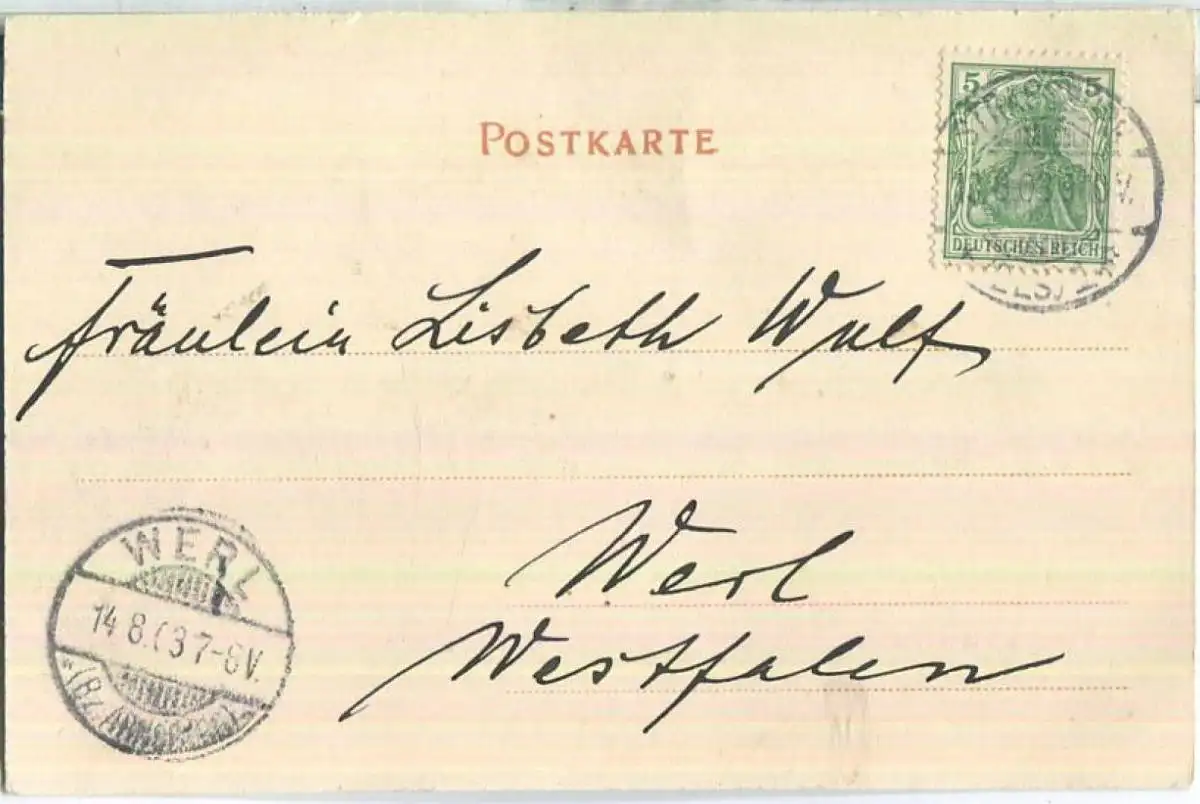 POSTKARTE
5 5
DEUTSCHES REICH
Fräulein Lisbeth Wulf
Werl
Westfalen
WERL
14 8.03 7-8V.
* (Bz. ARNSBERG)